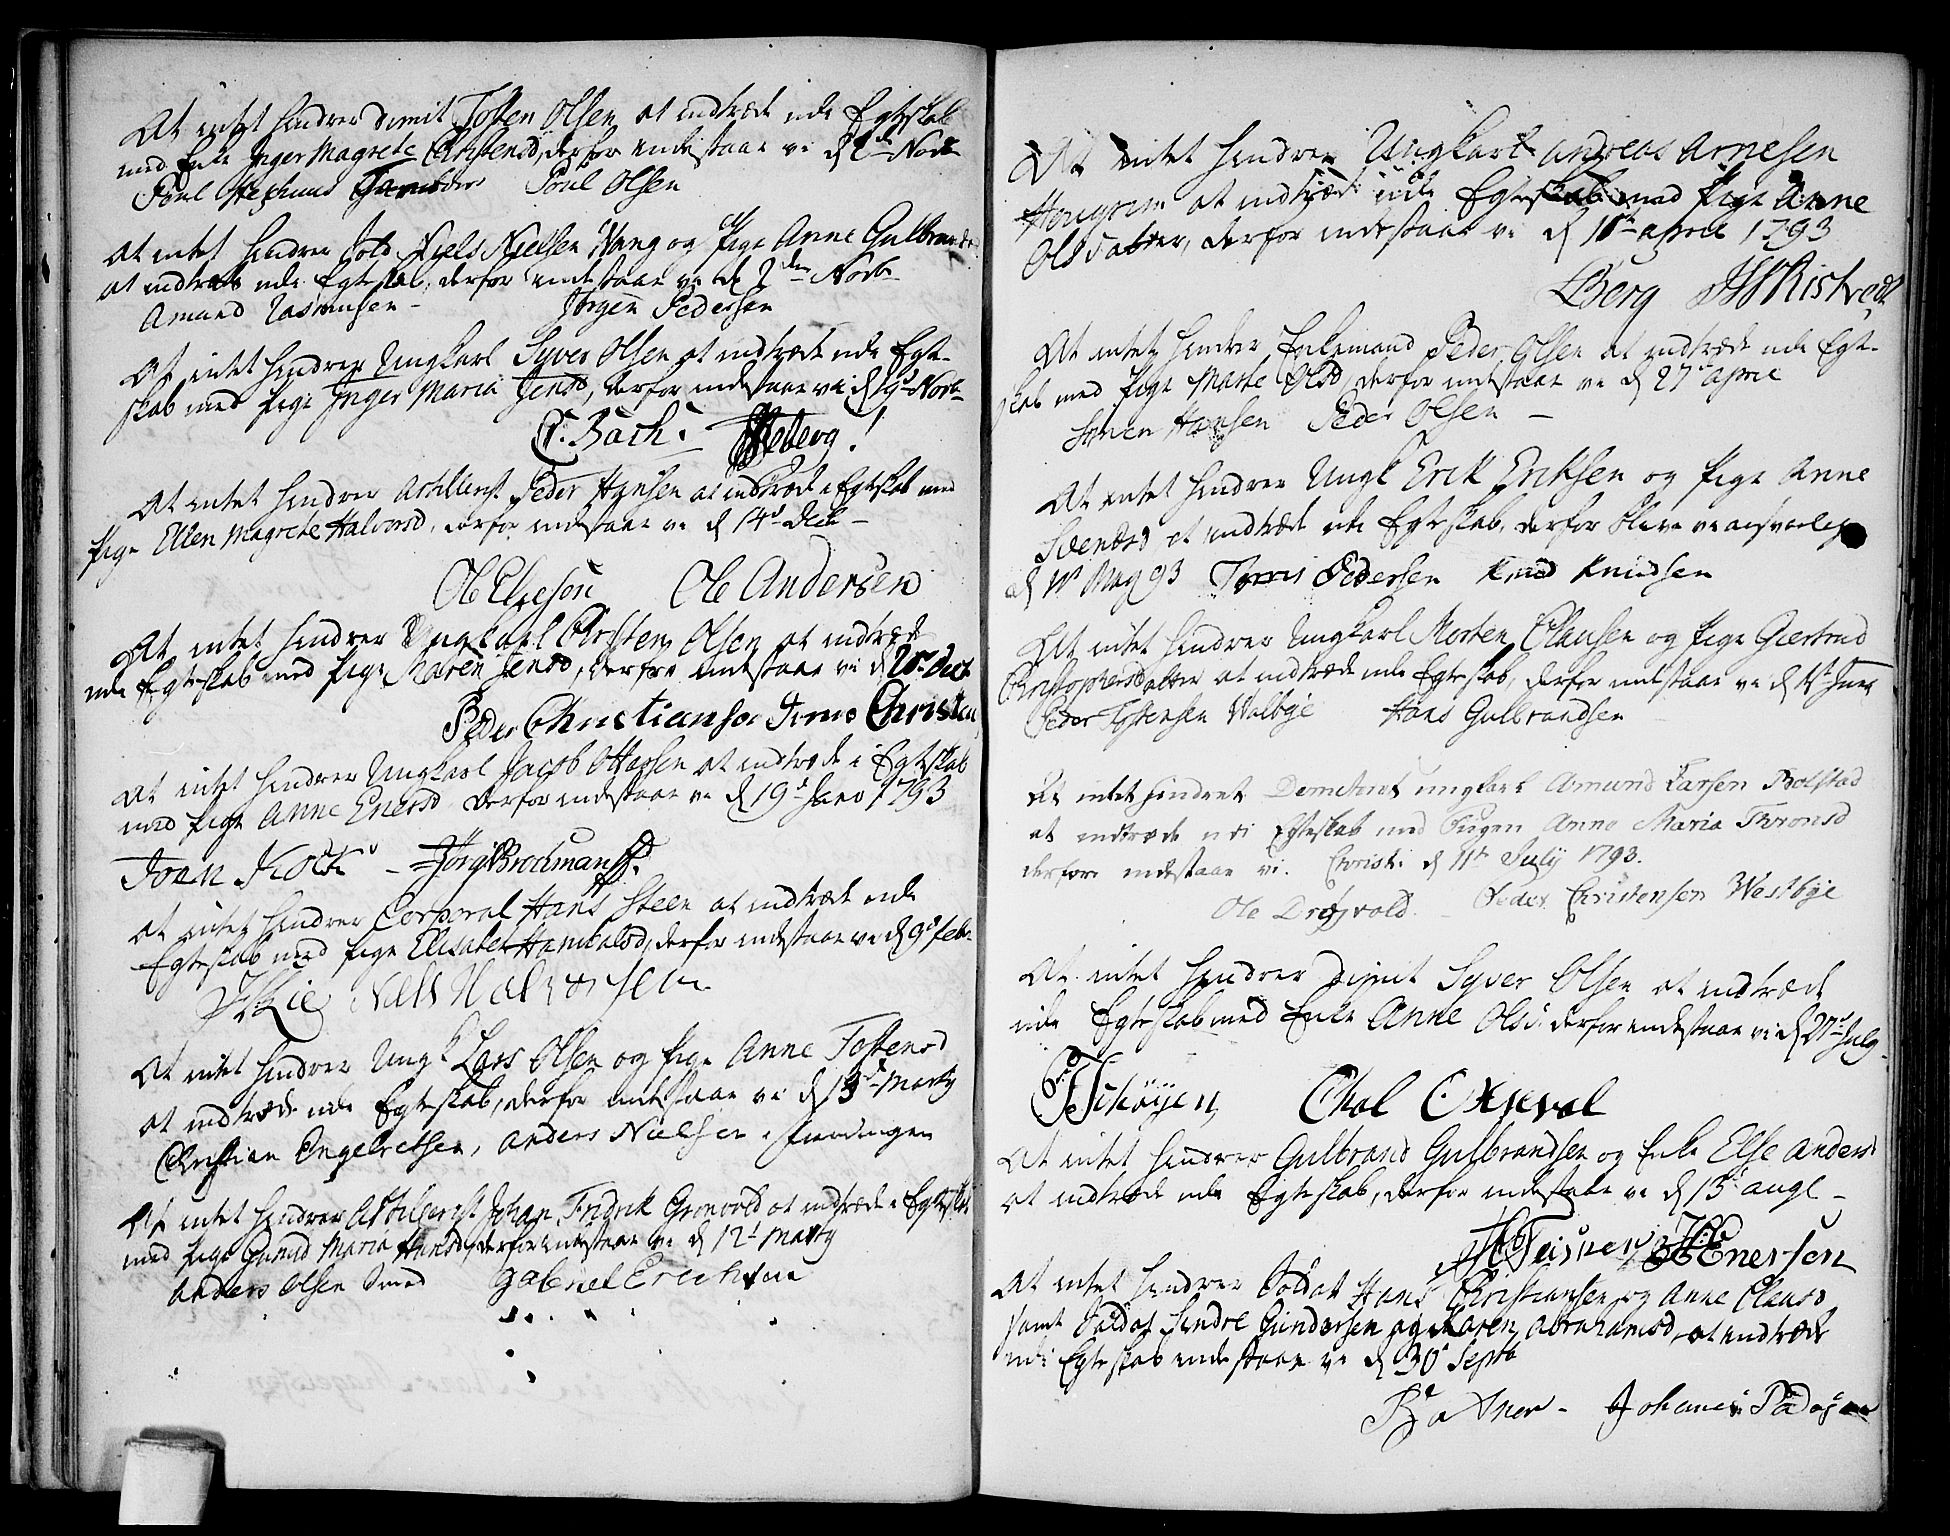 At intet hindrer dimit Tosten Olsen at indtræde udi Egteskab
med Enke Inger Magrete Christensd, derfor indestaar vi d 2d Novb
Poul Olsen
At intet hindrer Sold Niels Nielsen Vang og Pige Anne Gulbrandsd
at indtræde udi Egteskab, derfor indestaar vi d 2den Novb
Amund Rasmusen - Jørgen Pedersen
At intet hindrer Ungkarl Syver Olsen at indtræde udi Egte-
skab med Pige Inger Maria Jensd, derfor indestaar vi d 9d Novb
C. Bach.
At intet hindrer Artillerist Peder Hansen at indtræde i Egteskab med
Pige Ellen Magrete Halvorsd, derfor indestaar vi d 14d Decb -
Ole Andersen
At intet hindrer Ungkarl Christen Olsen at indtræde
udi Egteskab med Pige Maren Jensd, derfor indestaar vi d Decb
Peder Christiansen
At intet hindrer Ungkarl Jacob at indtræde i Egteskab
med Pige Anne Enersd derfor indestaar vi d 19d Janv 1793
At intet hindrer Corporal Hans Steen at indtræde udi
Egteskab med Pige Elisabet derfor indestaar vi d 9d Feb
Niels Halvorsen
At intet hindrer Ungk Lars Olsen og Pige Anne Tostensd
at indtræde udi Egteskab, derfor indestaar vi d Marty
Christian Engelretsen, Anders Nielsen
At intet hindrer Artillerist Johan Fridrik Gronvold at indtræde i Egteskab
med Pige Maria Hansd, derfor indestaar vi d 12d Marty
Anders Olsen Gabriel Erichsen
At intet hindrer Ungkarl Andreas Arnesen
at indtræde udi Egteskab med Pige Anne
Olsdatter, derfor indestaar vi d april 1793
Berg
At intet hindrer Enkemand Peder Olsen at indtræde udi Egt-
skab med Pige Marte Olsd, derfor indestaar vi d 27d april
Sören Hansen Peder Olsen -
At intet hindrer Ungk Erik Eriksen og Pige Anne
Svendsd at indtræde udi Egteskab, derfor blive vi ansvarlig
d May 93 Pedersen Knud Knudsen
At intet hindrer Ungkarl Morten Clausen og Pige Giertrud
Christophersdatter at indtræde udi Egteskab, derfor indestaar vi d
Peder Tostensen Valbye Hans Gulbrandsen
At intet hindrer ungkarl Amund Larsen Bolstad
at indtræde udi Egteskab med Pigen Anne Maria Thronsd
derfore indestaar vi. Christi. d 11te July 1793.
Ole - Peder Christensen Westbye
At intet hindrer Dimit Syver Olsen at indtræde
udi Egteskab med Enke Anne Olsd. derfor indestaar vi d July
At intet hindrer Gulbrand Gulbrandsen og Enke Else Andersd
at indtræde udi Egteskab, derfor indestaar vi d 13d augl -
Enersen
At intet hindrer Soldat Hans Christiansen og Anne Clausd
samt Soldat Sindre Gundersen og Karen Abrahamsd at indtræde
udi Egteskab indestaar vi d 30d Septb